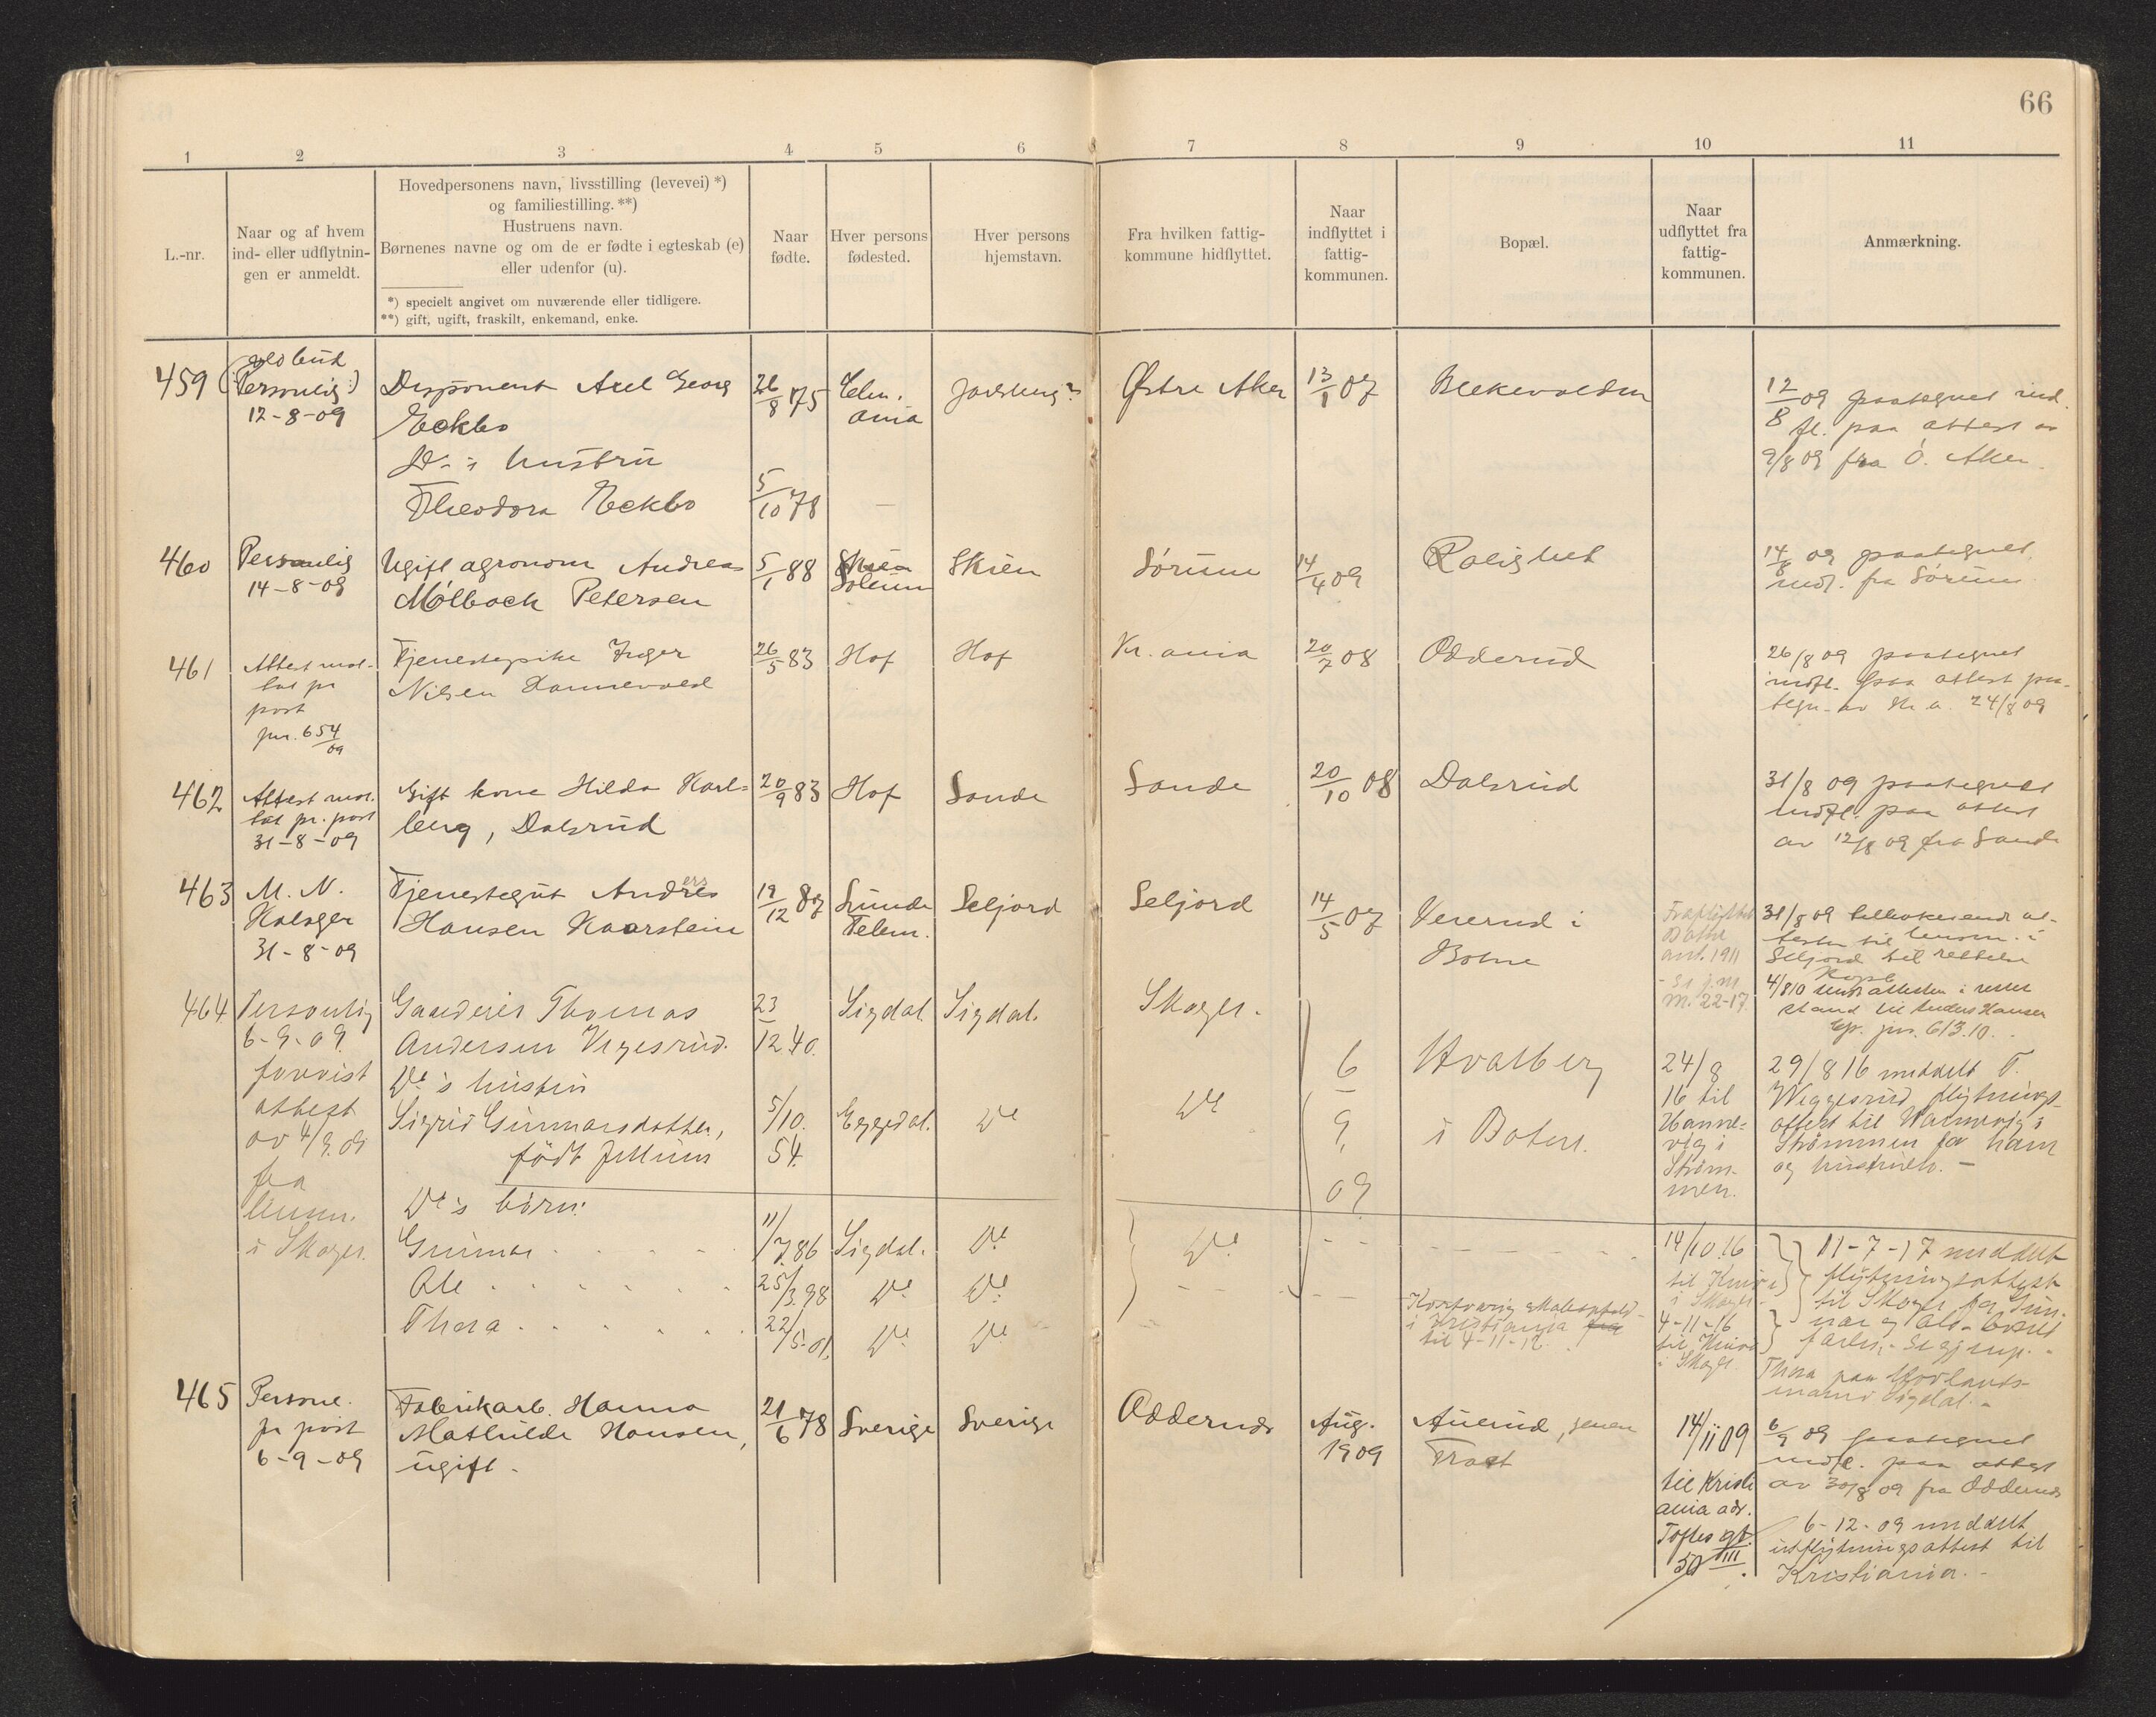 66
1 2 3 4 5 6 7 8 9 10 11
L.-nr.
Naar og af hvem
ind- eller udflytnin-
gen er anmeldt.
Hovedpersonens navn, livsstilling (levevei) *)
og familiestilling. **)
Hustruens navn.
Børnenes navne og om de er fødte i egteskab (e)
eller udenfor (u).
*) specielt angivet om nuværende eller tidligere.
**) gift, ugift, fraskilt, enkemand, enke.
Naar
fødte.
Hver persons
fødested.
Hver persons
hjemstavn.
Fra hvilken fattig-
kommune hidflyttet.
Naar
indflyttet i
fattig-
kommunen.
Bopæl.
Naar
udflyttet fra
fattig-
kommunen.
Anmærkning.
459
ved bud
(Personlig)
12-8-09
Disponent Axel Georg
Eckbo
D's hustru
Theodora Eckbo
26/8 75
5/10 78
Chr.
ania
Østre Aker
13/1 07
12/8 09 paategnet ind.
fl. paa attest av
9/8 09 fra Ö. Aker.
460
Personlig
14-8-09
Ugift agronom Andreas
Mölbach Petersen
5/1 88
Skien
Solum
Skien
Sørum
14/4 09
Rolighet
14/8 09 paategnet
indfl. fra Sørum
461
Attest mot-
tat pr
post
jnr. 654/09
Tjenestepike Inger
Nilsen Hannevold
26/5 83
Hof
Hof
Kr. ania
20/7 08
Odderud
26/8 09 paategnet
indfl. paa attest paa-
tegn. av Kr. a. 24/8 09
462
Attest mot-
tat pr. post
31-8-09
Gift kone Hilda Karl-
berg, Dalsrud
20/9 83
Hof
Sande
Sande
20/10 08
Dalsrud
31/8 09 paategnet
indfl. paa attest
av 12/8 09 fra Sande
463
M. N.
Holager
31-8-09
Tjenestegut Andres
ers
Hansen Kaarstein
19/12 87
Lunde
Telem.
Seljord
Seljord
14/5 07
Vererud i
Botne
Fraflyttet
Botne
ant. 1911
- se j.nr.
m. 22-17
31/8 09 tilbakesendt at-
testen til lensm. i
Seljord til rettelse
4/8 10 sendt attesten i rettet
stand til Anders Hansen
Cp. jnr. 613.10.
464
Personlig
6-9-09
forvist
attest
av 4/9 09
fra
lensm.
i Skoger.
Gaardeier Thomas
Andersen Vegesrud.
Do's hustru
Sigrid Gunnarsdatter,
födt Jellum
Do's börn:
Gunnar
Ole
Thora
23/12 40.
5/10.
54.
11/7 86
25/3 98
22/5-01.
Sigdal.
Eggedal.
Sigdal.
Do
Do
Sigdal.
Do
Do
Do
Do
Skoger.
Do
Do
6
9
09
Hvalberg
i Botne.
Kortvarig
i Kristiania fra
til 4-11-12.
24/8
16 til
Hanne-
vig i
Ström-
men.
14/10.16
til
i Skoger.
4-11-16
til
i Skoger
29/8 16 meddelt T.
Weggesrud flytnings-
attest til Hannevig i
Strømmen for ham
og hustruen. -
11-7-17 meddelt
flytningsattest
til Skoger for Gun-
nar og
Thora paa
Sigdal.
465
Personl.
pr post
6-9-09
Fabrikarb. Hanna
Mathilde Hansen,
ugift.
21/6 78
Sverige
Sverige
Oddernes
Aug.
1909
Auerud,
14/11 09
til Kristi
ania adr.
Toftes gt.
50 III.
6/9 09 paategnet
indfl. paa attest
av 30/8 09 fra Oddernes
6-12-09 meddelt
utflytningsattest til
Kristiania. -